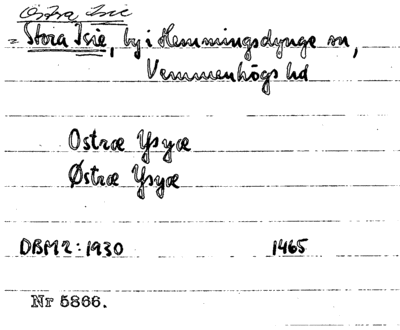 Östra Isie
= Stora Isie, by i Hemmingsdynge sn,
Vemmenhögs hd
Ostræ Ysyæ
Østræ Ysyæ
DBM2: 1930 1465
Nr 5866.